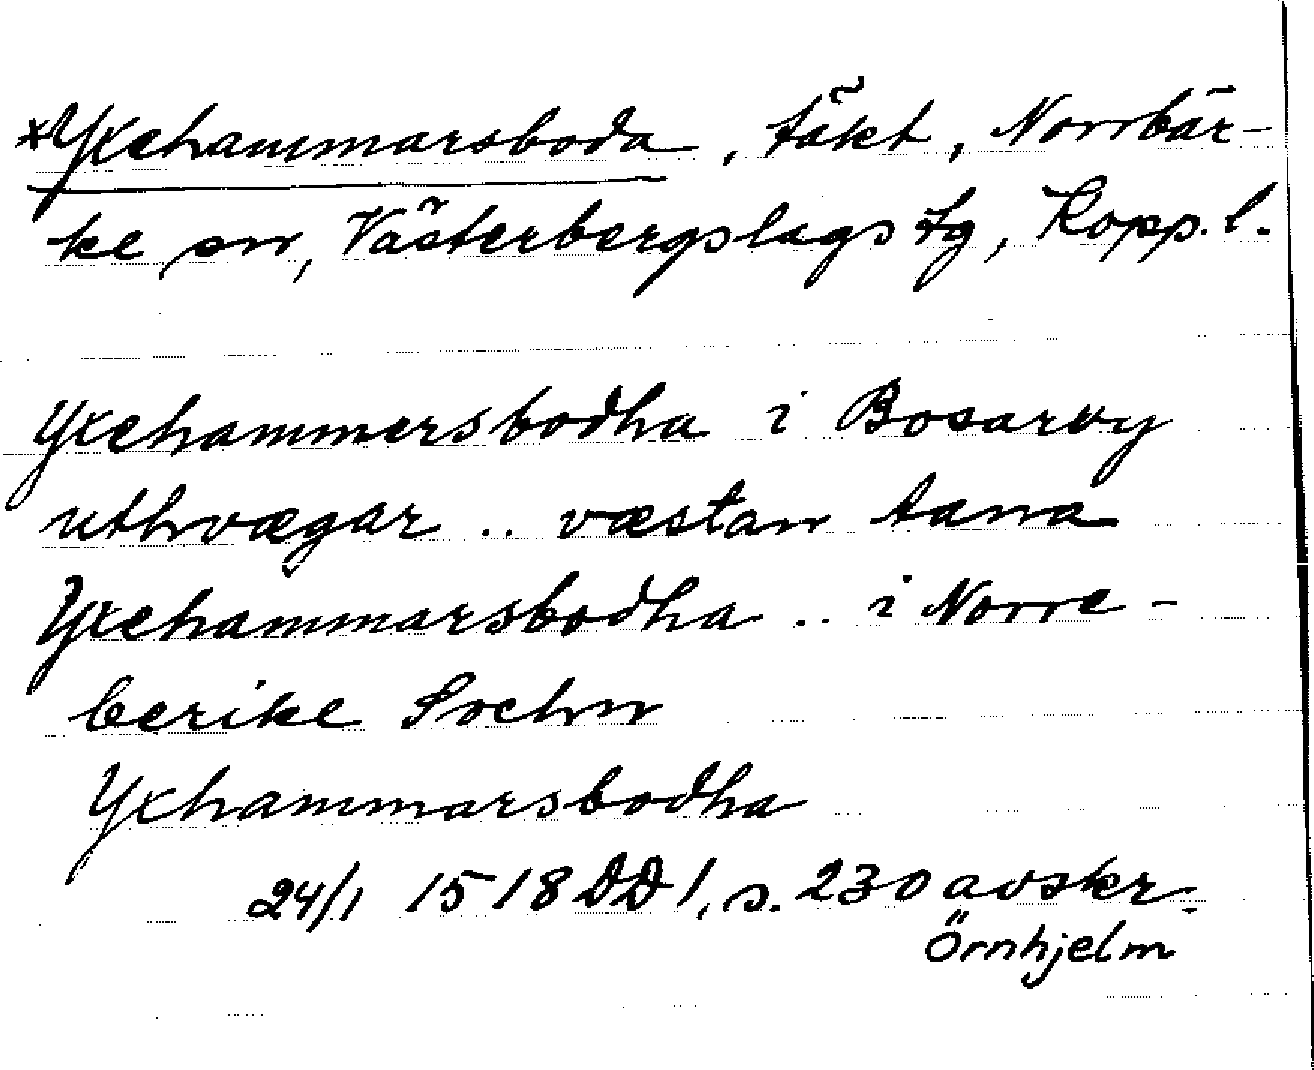 *Yxehammarsboda, täkt, Norrbär-
ke sn, Västerbergslags tg, Kopp. l.
Yxehammersbodha i Bosarvy
uthvægar .. væstan tana
Yxehammarsbodha .. i Norre-
berike Sochn
Yxhammarsbodha
24/1 1518 DD 1, s. 230 avskr.
Örnhjelm